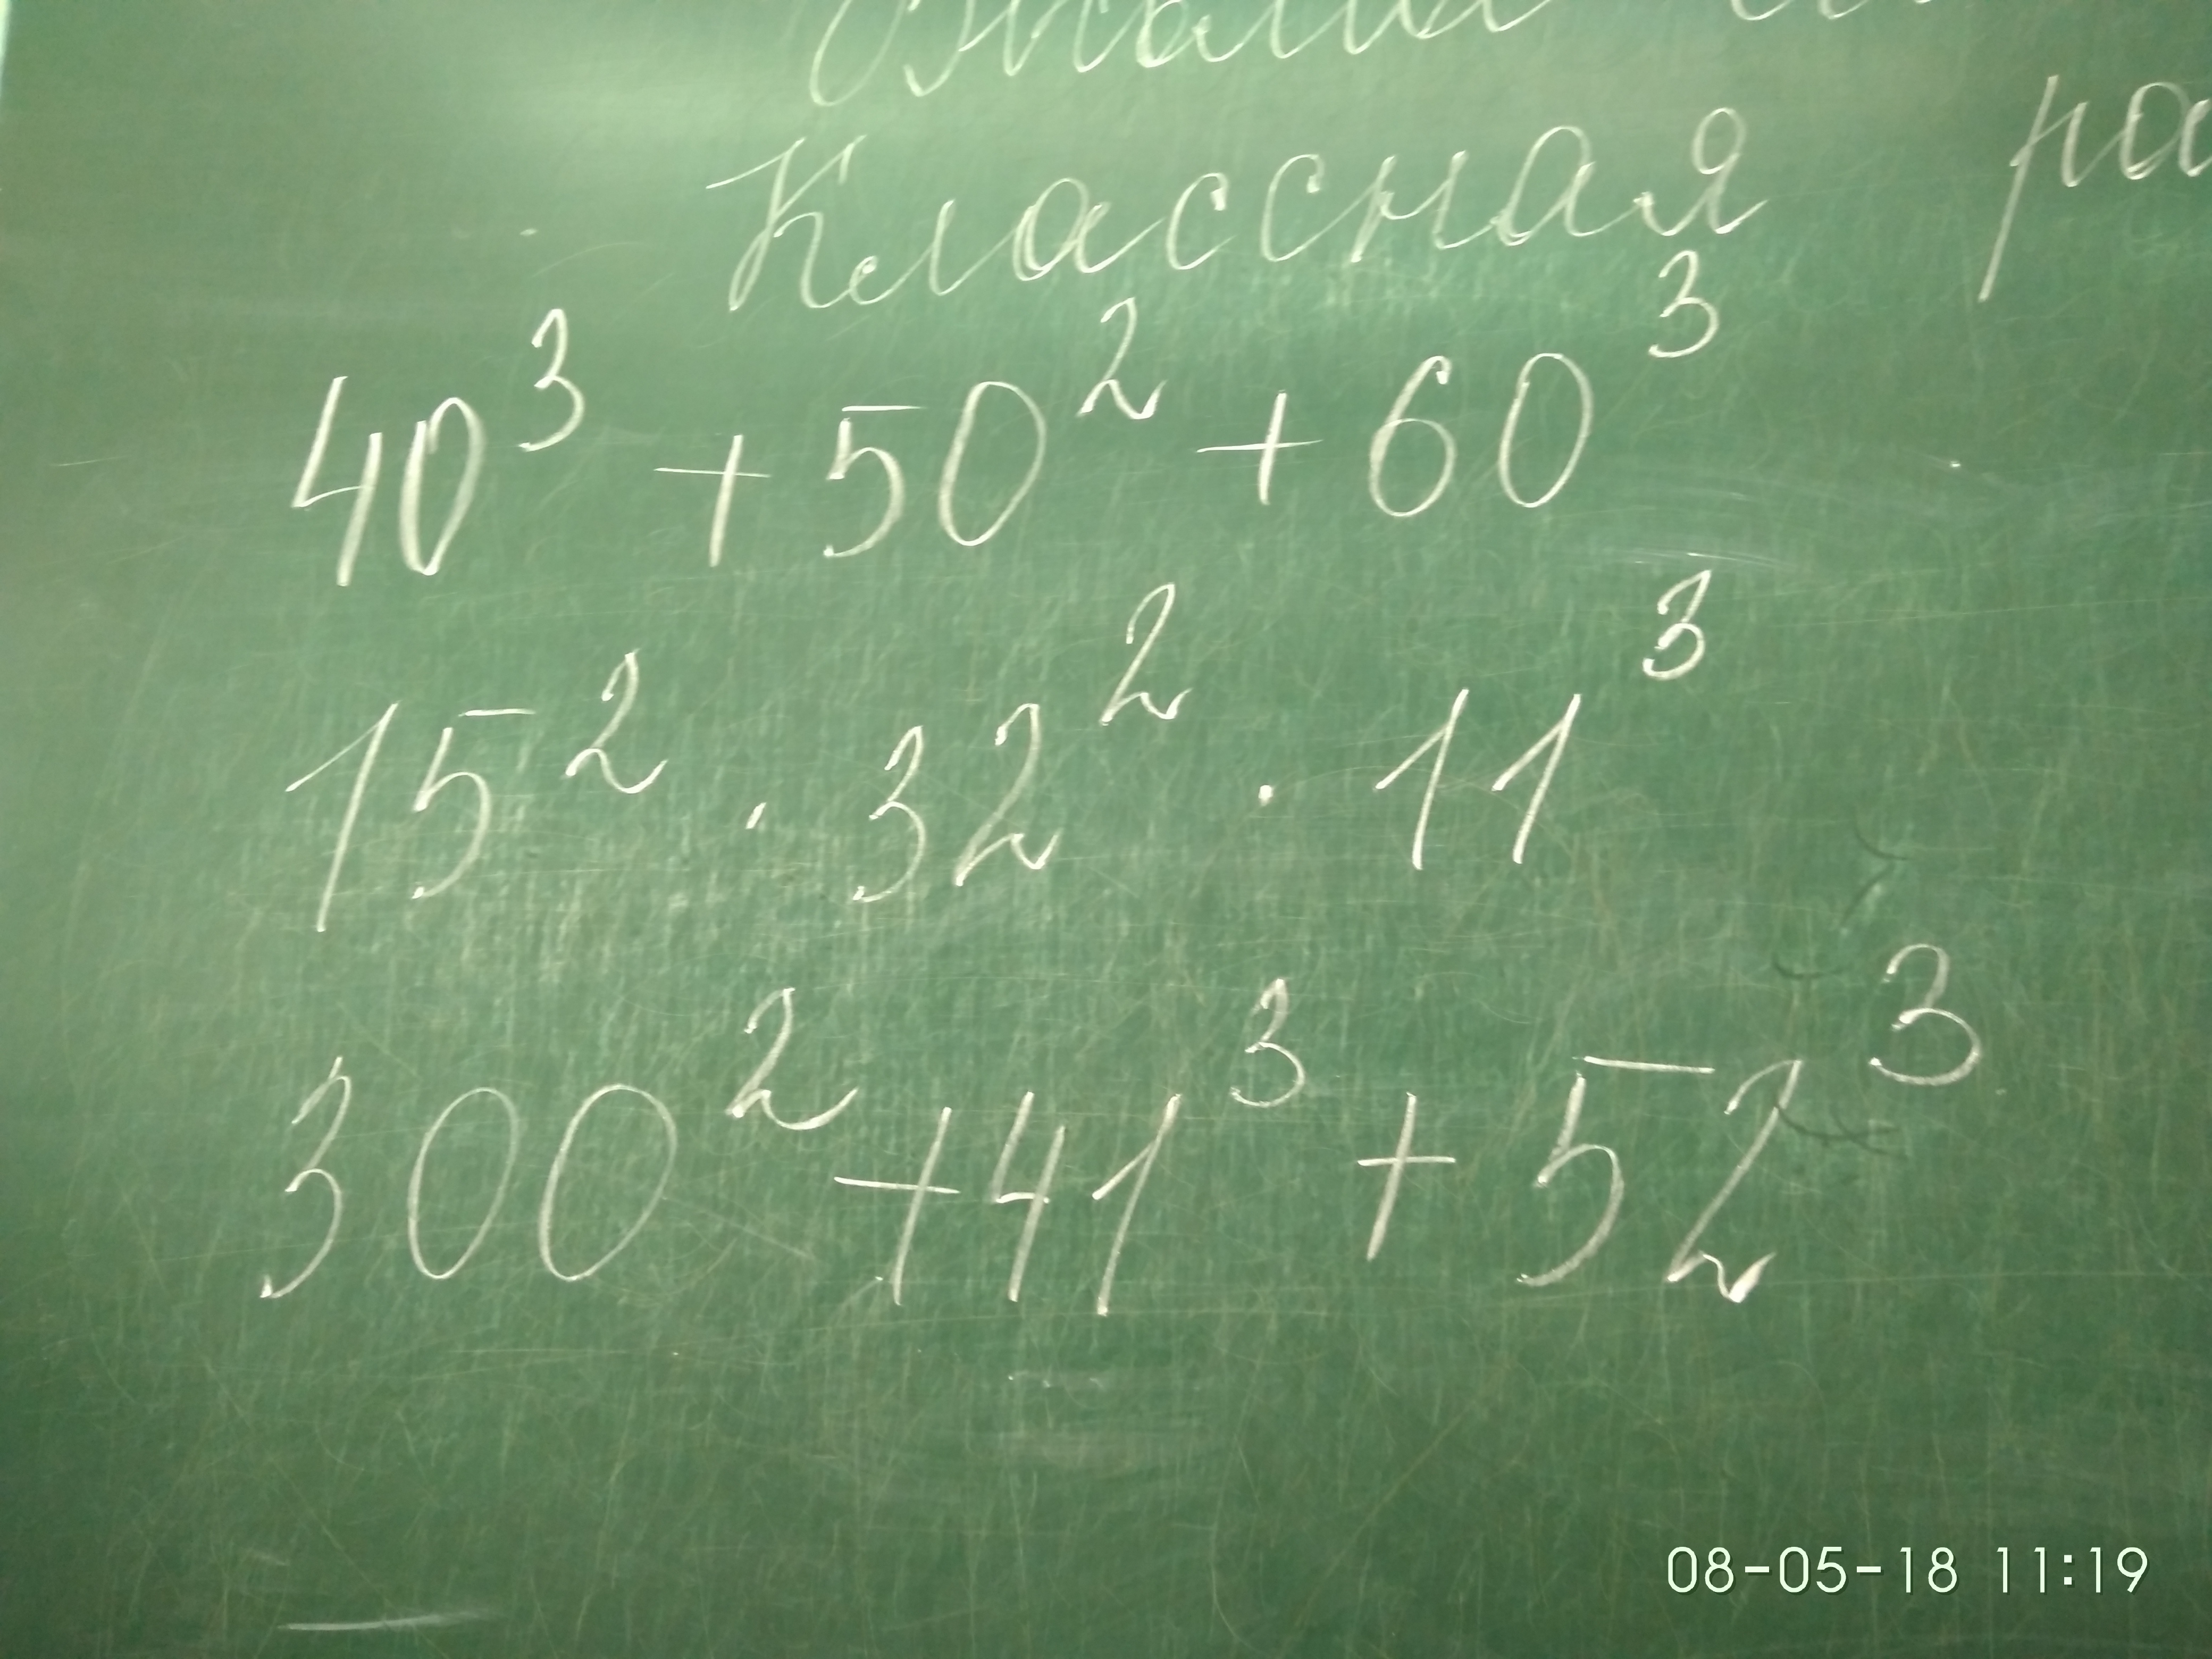 Классная
40³ + 50² + 60³
15² · 32² · 11³
300² + 41³ + 52³
08-05-18 11:19